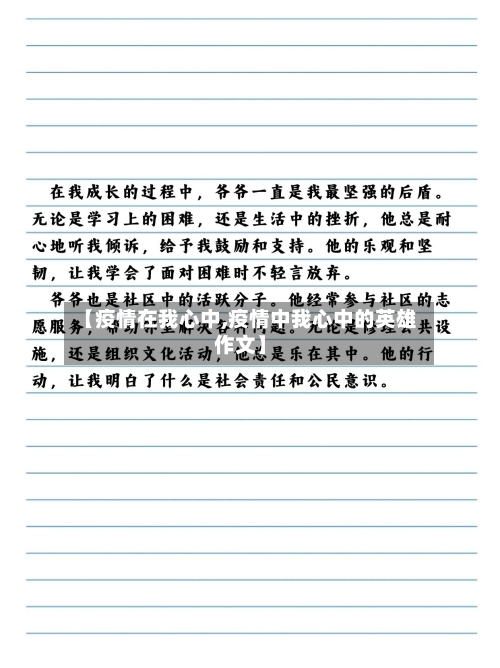 在我成长的过程中，爷爷一直是我最坚强的后盾。
无论是学习上的困难，还是生活中的挫折，他总是耐
心地听我倾诉，给予我鼓励和支持。他的乐观和坚
韧，让我学会了面对困难时不轻言放弃。
爷爷也是社区中的活跃分子。他经常参与社区的志
愿服务，
【疫情在我心中,疫情中我心中的英雄
作文】
共设
施，还是组织文化活动，他总是乐在其中。他的行
动，让我明白了什么是社会责任和公民意识。